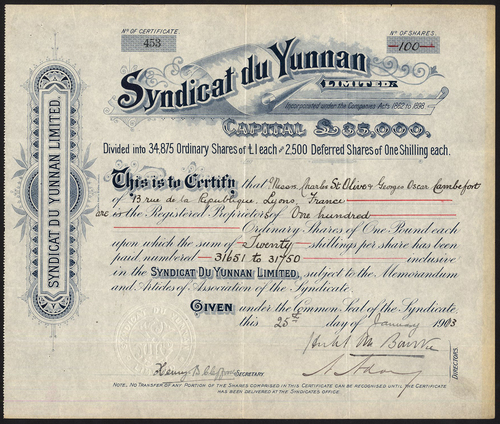 No OF CERTIFICATE.
453
No OF SHARES.
100
Syndicat du Yunnan
LIMITED.
Incorporated under the Companies Acts 1862 to 1898.
CAPITAL £35,000,
Divided into 34,875 Ordinary Shares of £1 each and 2,500 Deferred Shares of One Shilling each.
This is to Certify that Messrs Charles St Olive & Georges Oscar Cambefort
of 13 rue de la Republique, Lyons, France
are the Registered Proprietors of One hundred
Ordinary Shares of One Pound each
upon which the sum of Twenty shillings per share has been
paid numbered 31651 to 31750 inclusive
in the SYNDICAT DU YUNNAN LIMITED, subject to the Memorandum
and Articles of Association of the Syndicate.
GIVEN under the Common Seal of the Syndicate
this 25th day of January 1903
SECRETARY
DIRECTORS.
NOTE, NO TRANSFER OF ANY PORTION OF THE SHARES COMPRISED IN THIS CERTIFICATE CAN BE RECOGNISED UNTIL THE CERTIFICATE
HAS BEEN DELIVERED AT THE SYNDICATES OFFICE.
SYNDICAT DU YUNNAN LIMITED.